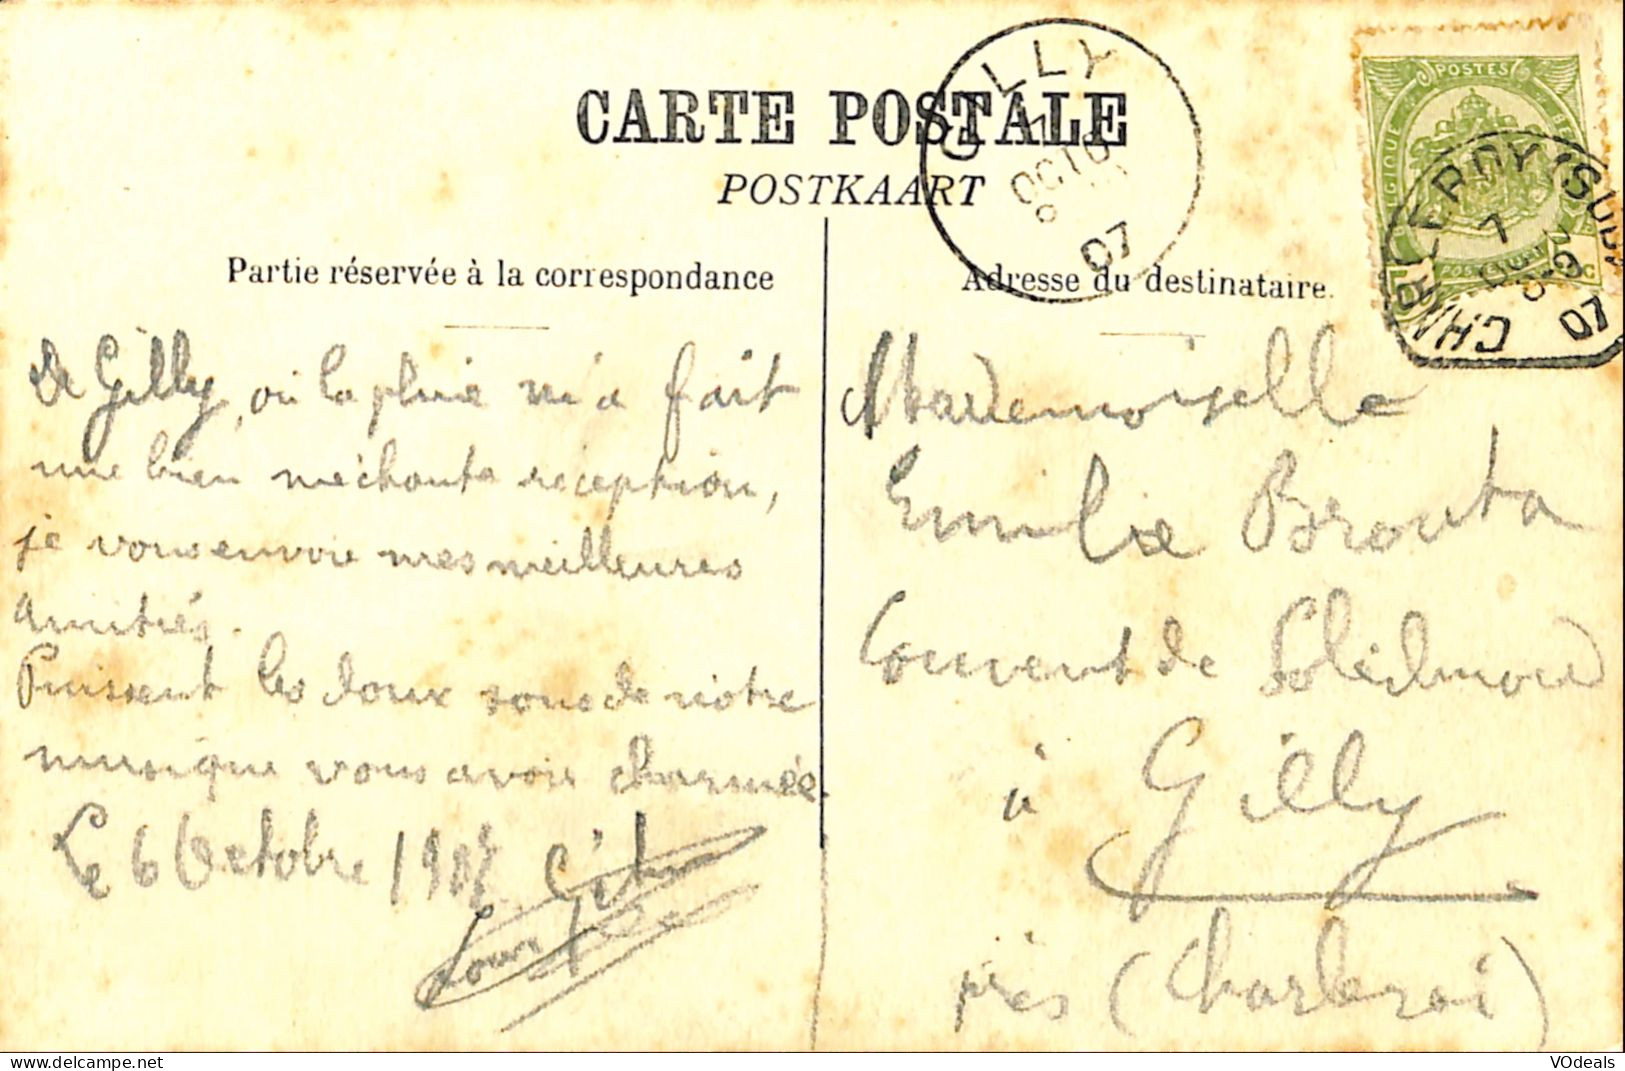 CARTE POSTALE
POSTKAART
GILLY
7
OCTO
8
07
POSTES
BELGIQUE
CHARLEROY (SUD)
7
8-9
07
Partie réservée à la correspondance
De Gilly, où la pluie m'a fait
une bien méchante réception,
je vous envoie mes meilleures
amitiés.
Puissent les doux sons de notre
musique vous avoir charmée.
Le 6 Octobre 1907
Louis
Adresse du destinataire.
Mademoiselle
Emilie Brouta
Couvent de
à Gilly
près (Charleroi)
www.delcampe.net
VOdeals